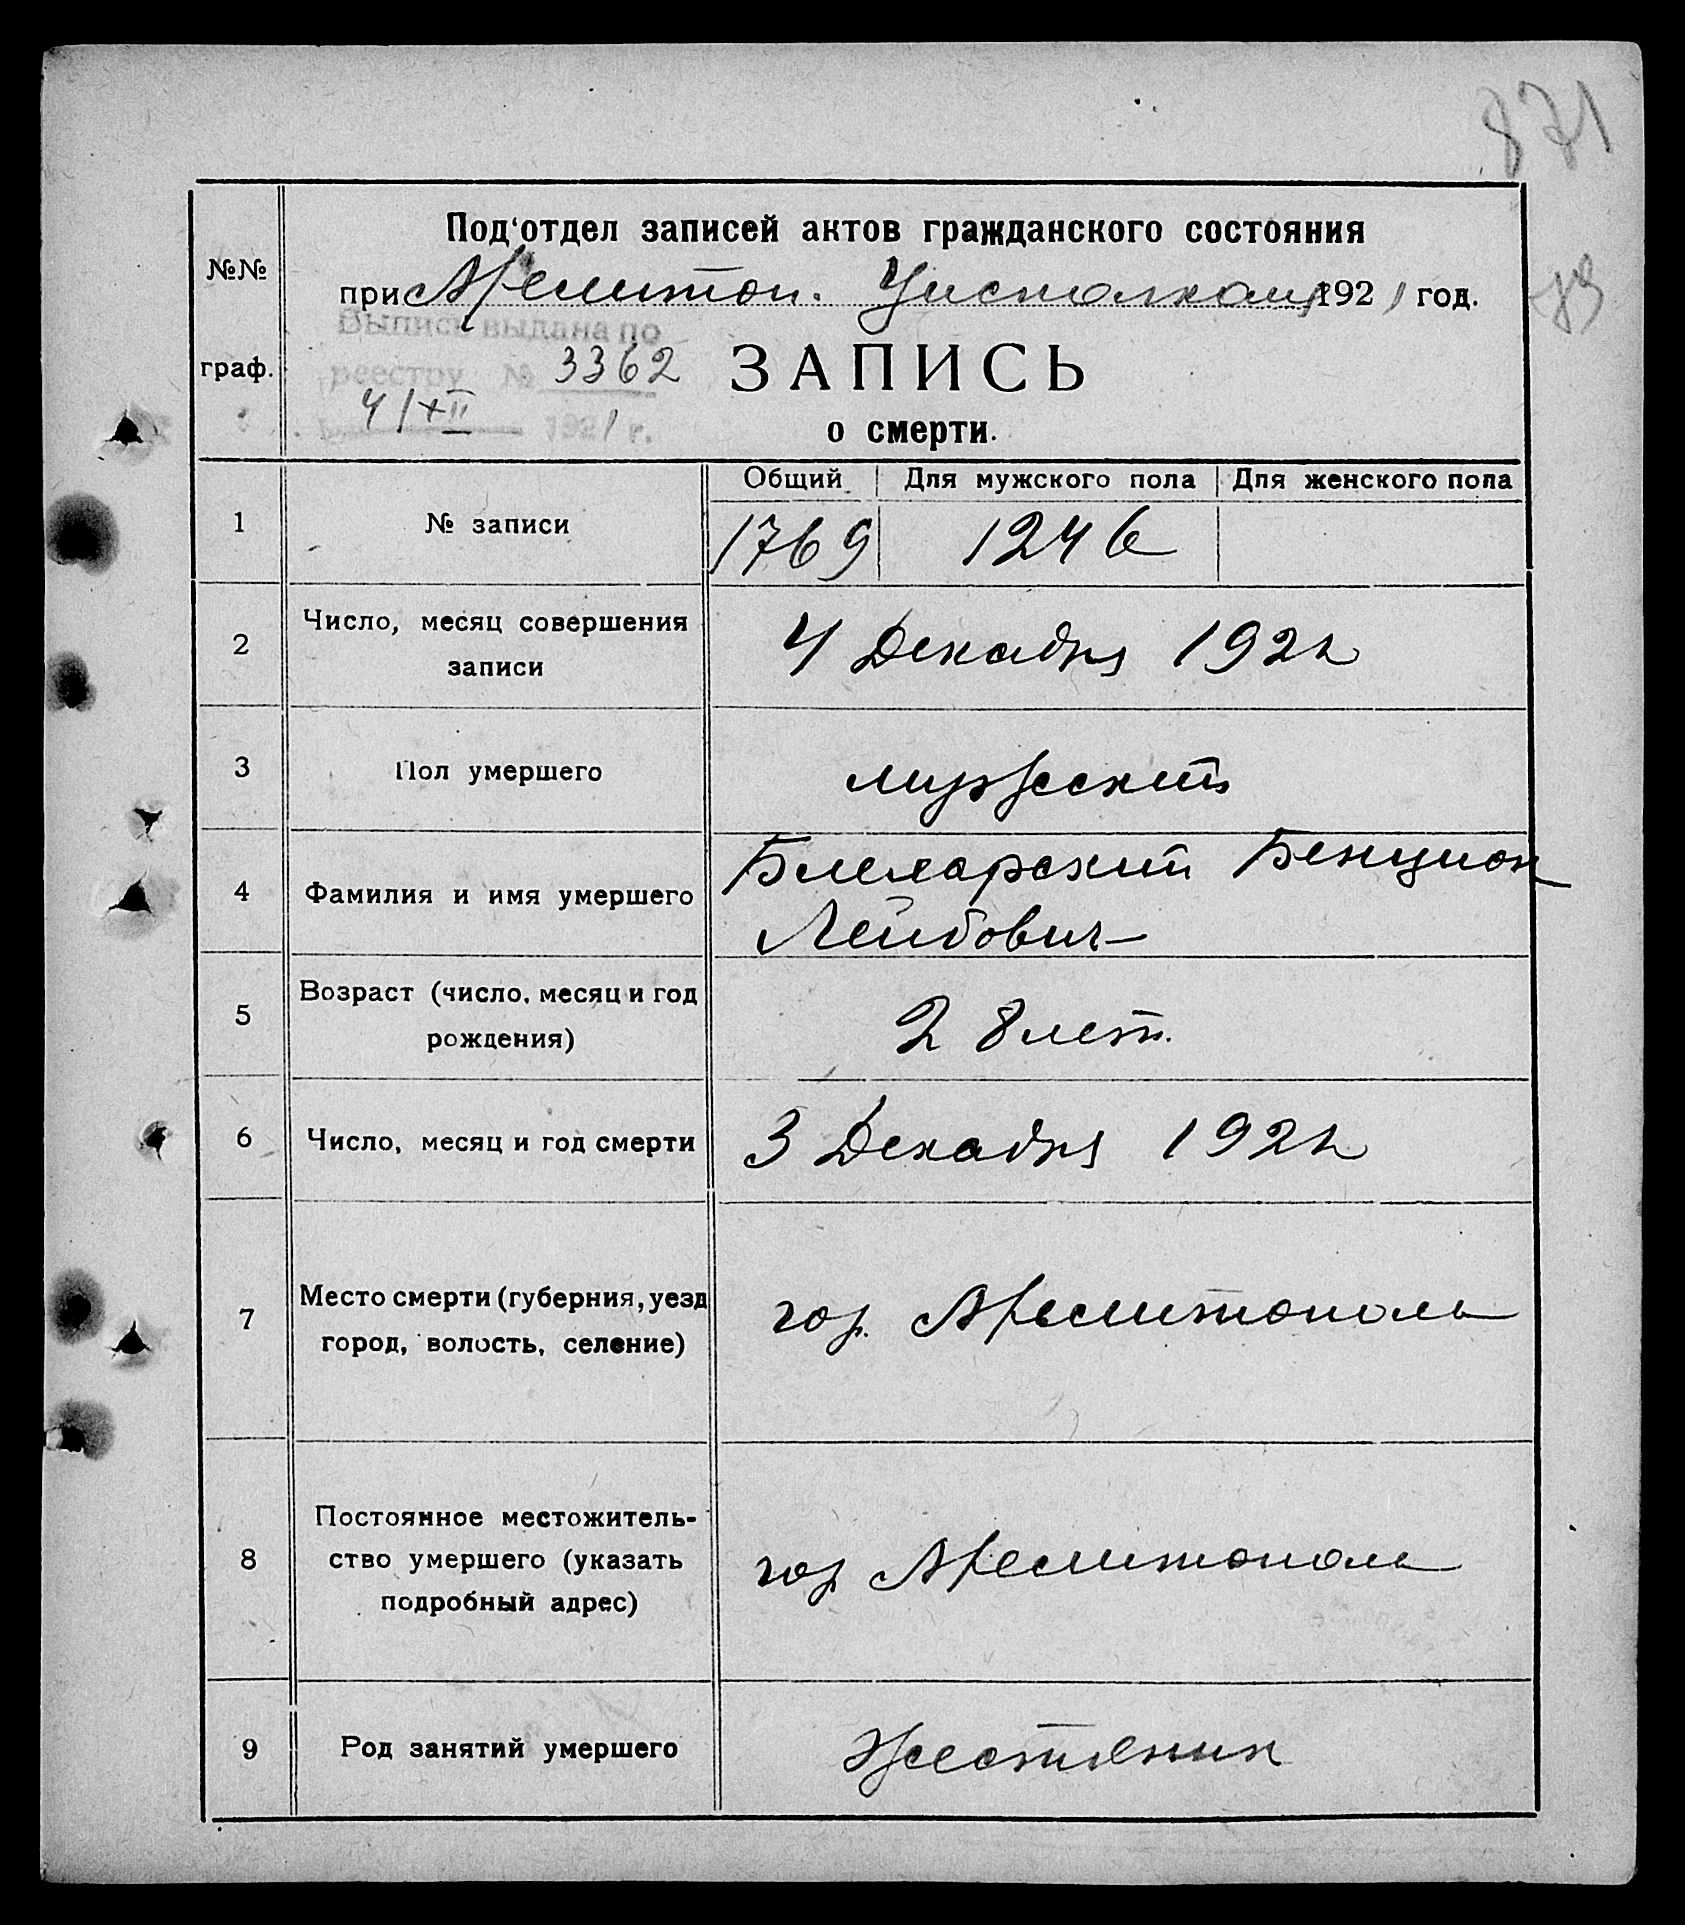 871
Под'отдел записей актов гражданского состояния
№№
при Мелитоп. Уисполкому 1921 год.
Выпись выдана по
реестру № 3362
граф.
ЗАПИСЬ
4/XII 1921 г.
о смерти.
Общий Для мужского пола Для женского пола
1 № записи 1769 1246
2 Число, месяц совершения
записи
4 Декабря 1921
3 Пол умершего мужеский
4 Фамилия и имя умершего
Бенцион
Лейбович
5 Возраст (число, месяц и год
рождения)
28 лет.
6 Число, месяц и год смерти 3 Декабря 1921
7 Место смерти (губерния, уезд
город, волость, селение)
гор. Мелитополь
8 Постоянное местожитель-
ство умершего (указать
подробный адрес)
гор Мелитополь
9 Род занятий умершего Жестяник